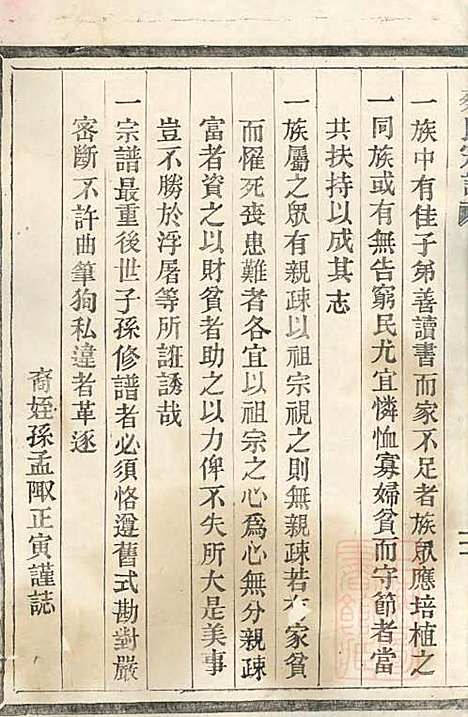 一族中有佳子弟善讀書而家不足者族眾應培植之
一同族或有無告窮民尤宜憐恤寡婦貧而守節者當
共扶持以成其志
一族屬之眾有親疎以祖宗視之則無親疎若有家貧
而罹死喪患難者各宜以祖宗之心為心無分親疎
富者資之以財貧者助之以力俾不失所大是美事
豈不勝於浮屠等所誑誘哉
一宗譜最重後世子孫修譜者必須恪遵舊式勘對嚴
密斷不許曲筆狥私違者革逐
裔姪孫孟陬正寅謹誌